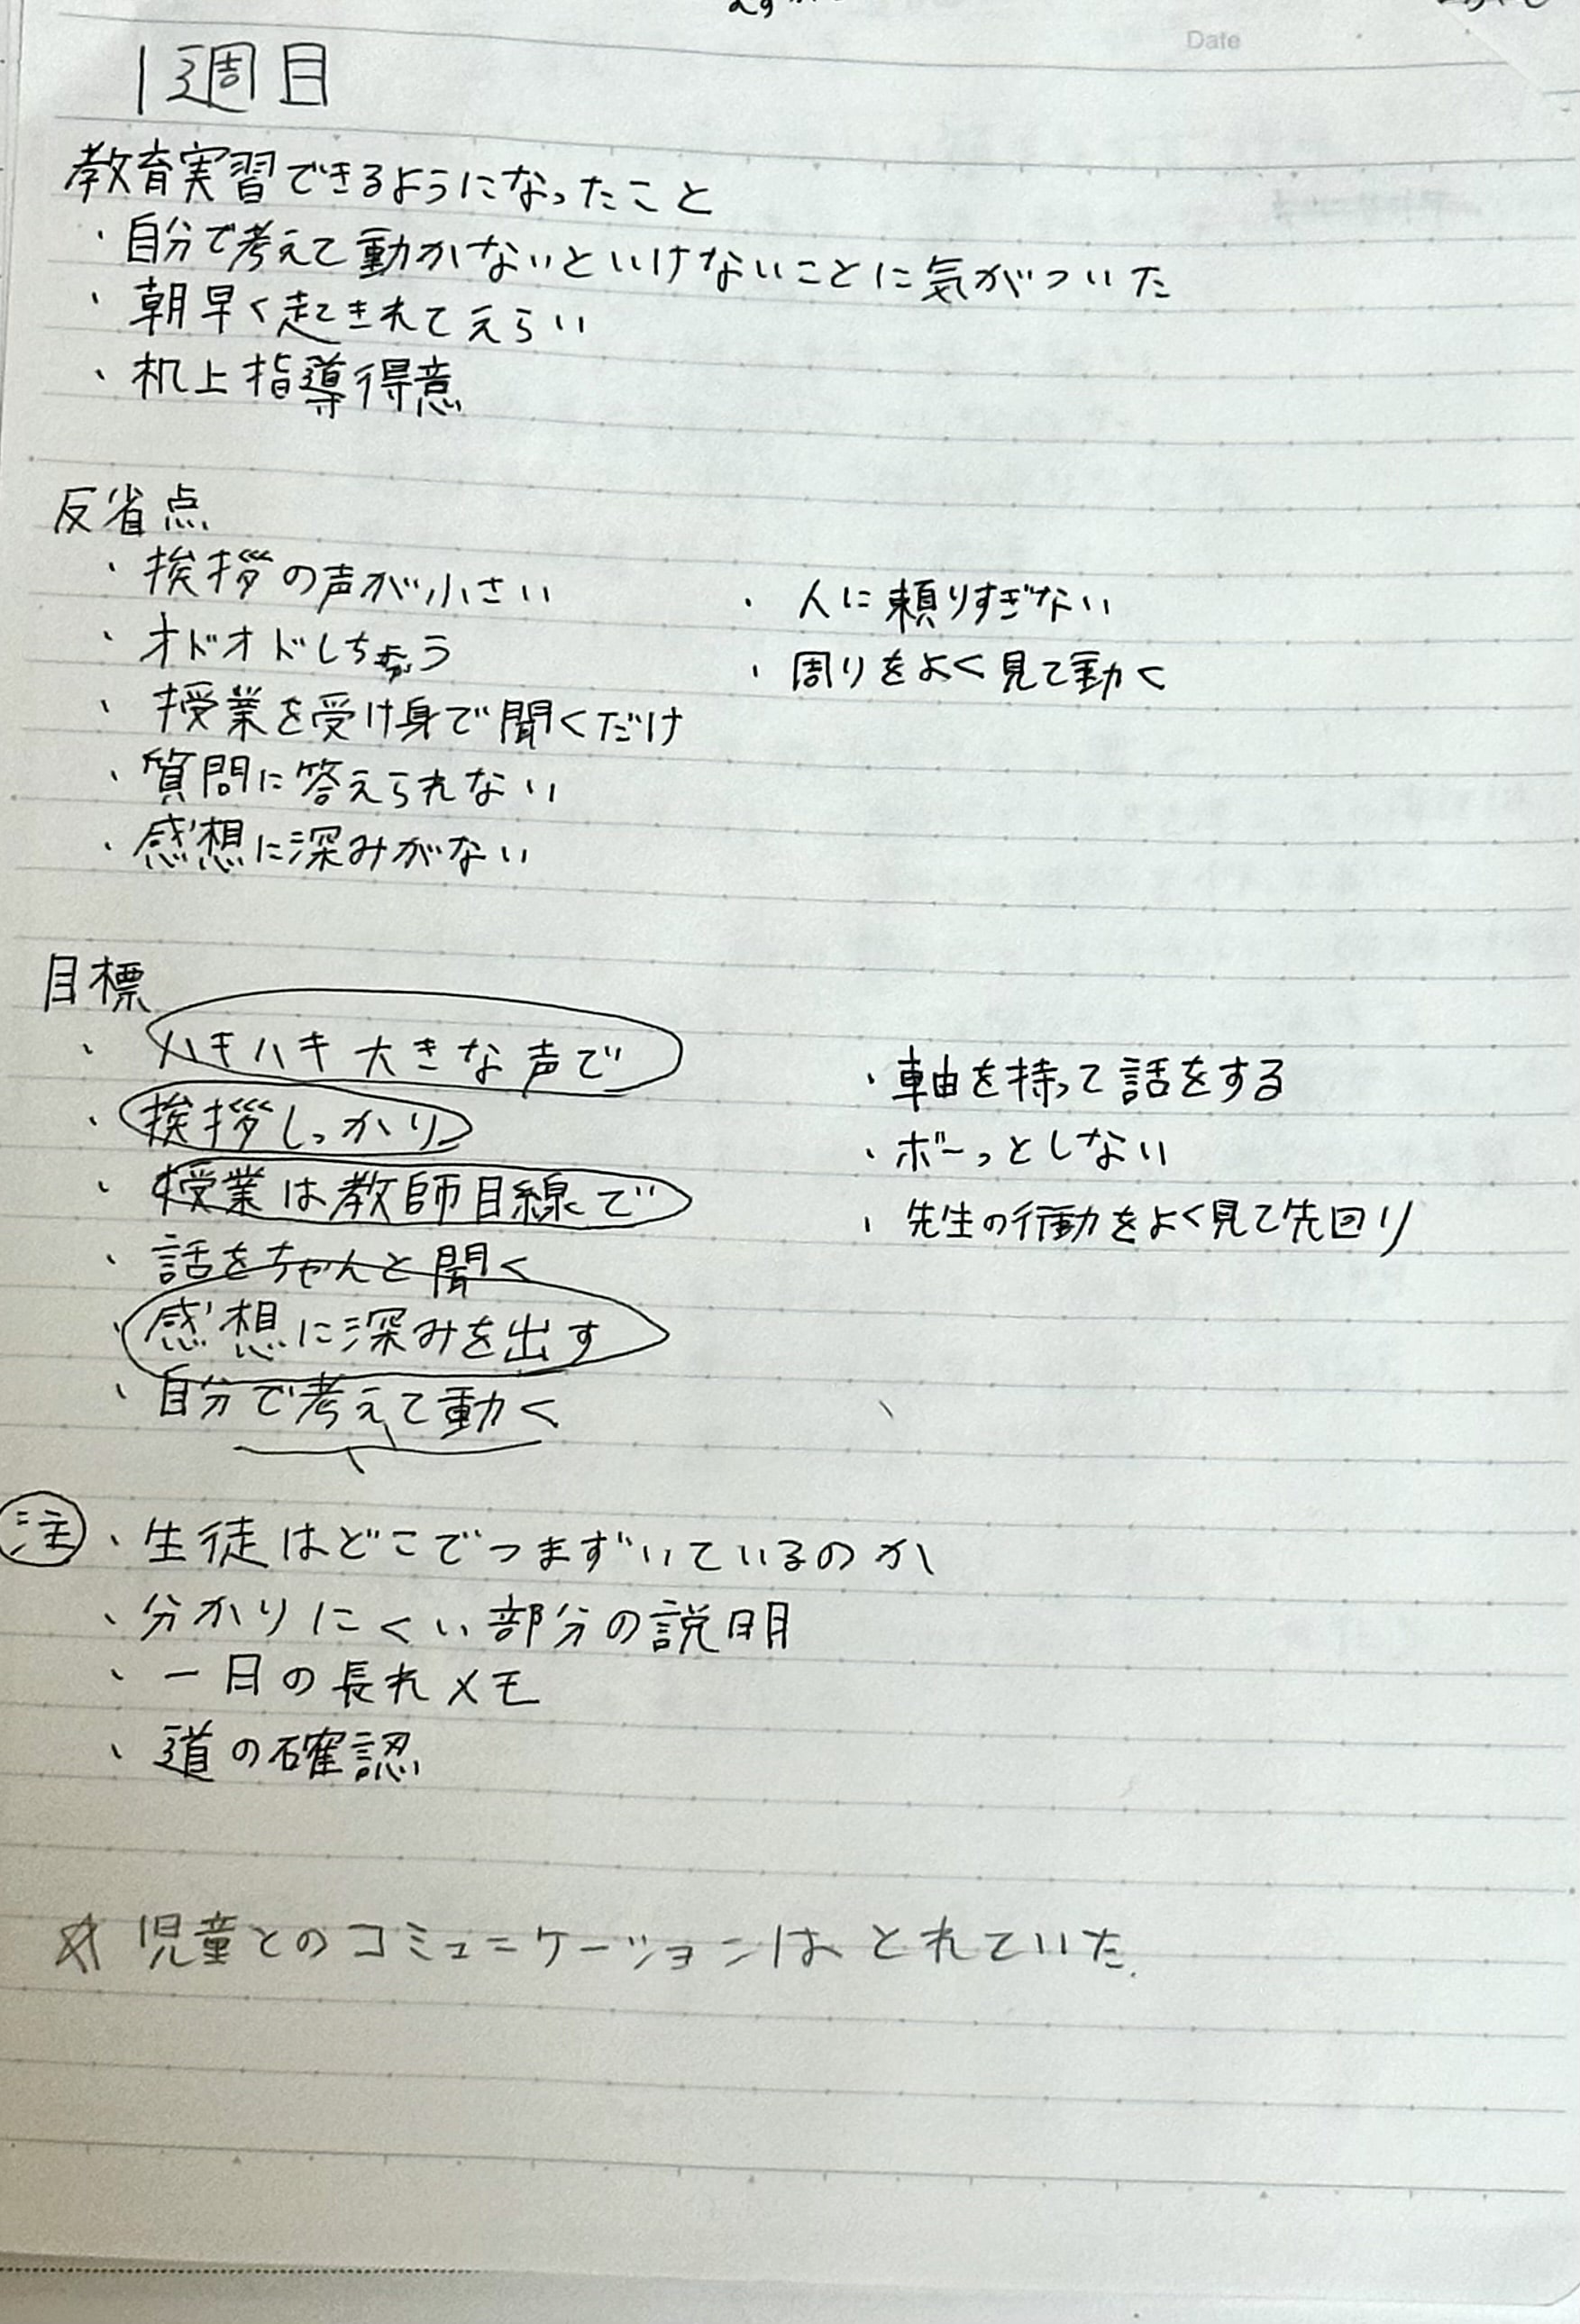 Date
1週目
教育実習できるようになったこと
・自分で考えて動かないといけないことに気がついた
・朝早く起きれてえらい
・机上指導得意
反省点
・挨拶の声が小さい
・オドオドしちゃう
・授業を受け身で聞くだけ
・質問に答えられない
・感想に深みがない
・人に頼りすぎない
・周りをよく見て動く
目標
・ハキハキ大きな声で
・挨拶しっかり
・授業は教師目線で
・話をちゃんと聞く
・感想に深みを出す
・自分で考えて動く
・軸を持って話をする
・ボーっとしない
・先生の行動をよく見て先回り
注・生徒はどこでつまずいているのか
・分かりにくい部分の説明
・一日の長れメモ
・道の確認
☆児童とのコミュニケーションはとれていた.